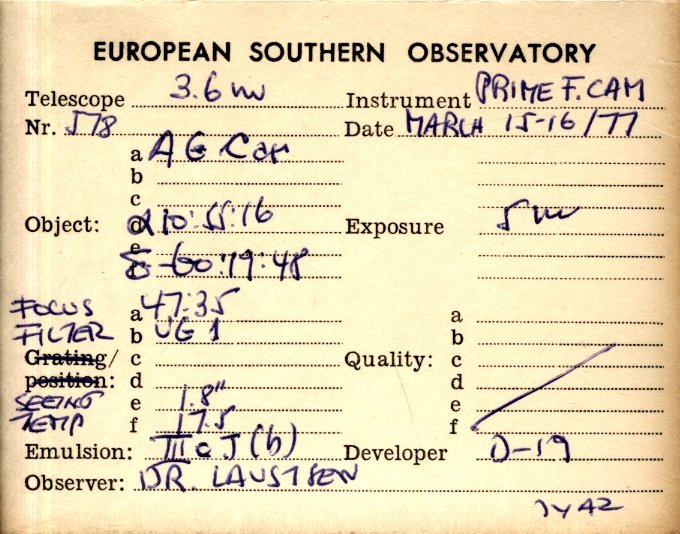 EUROPEAN SOUTHERN OBSERVATORY
Telescope 3.6 m Instrument PRIME F. CAM
Nr. 578 Date MARCH 15-16/77
a AG Car
b
c
Object: d α 10:55:16 Exposure 5 m
e
f δ -60:19:48
FOCUS a 47:35 a
FILTER b UG 1 b
Grating/ c Quality: c
position: d d
SEEING e 1.8" e
TEMP f 17.5 f
Emulsion: III a J (b) Developer D-19
Observer: DR. LAUSTSEN